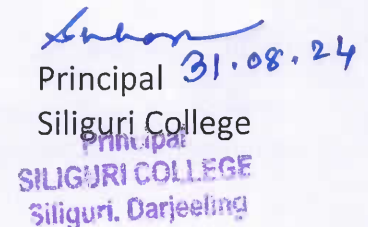 31.08.24
Principal
Siliguri College
Principal
SILIGURI COLLEGE
Siliguri. Darjeeling